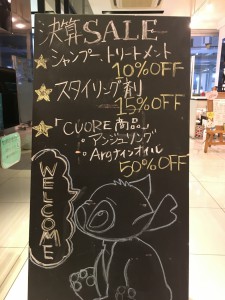 決算SALE
シャンプー、トリートメント
10%OFF
スタイリング剤
15%OFF
「CUORE商品」
・アンジュリング
・Argナインオイル
50%OFF
WELCOME